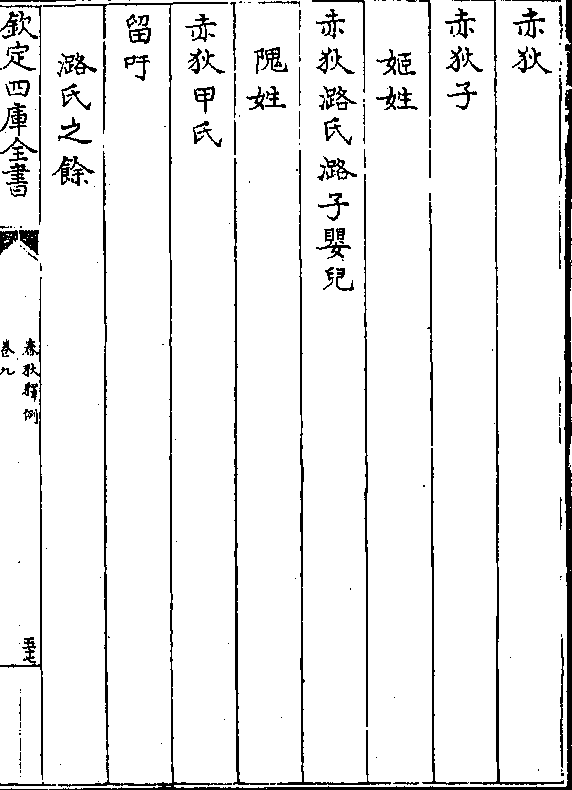 赤狄
赤狄子
姬姓
赤狄潞氏潞子嬰兒
隗姓
赤狄甲氏
留吁
潞氏之餘
欽定四庫全書
春秋釋例
卷九
五十七